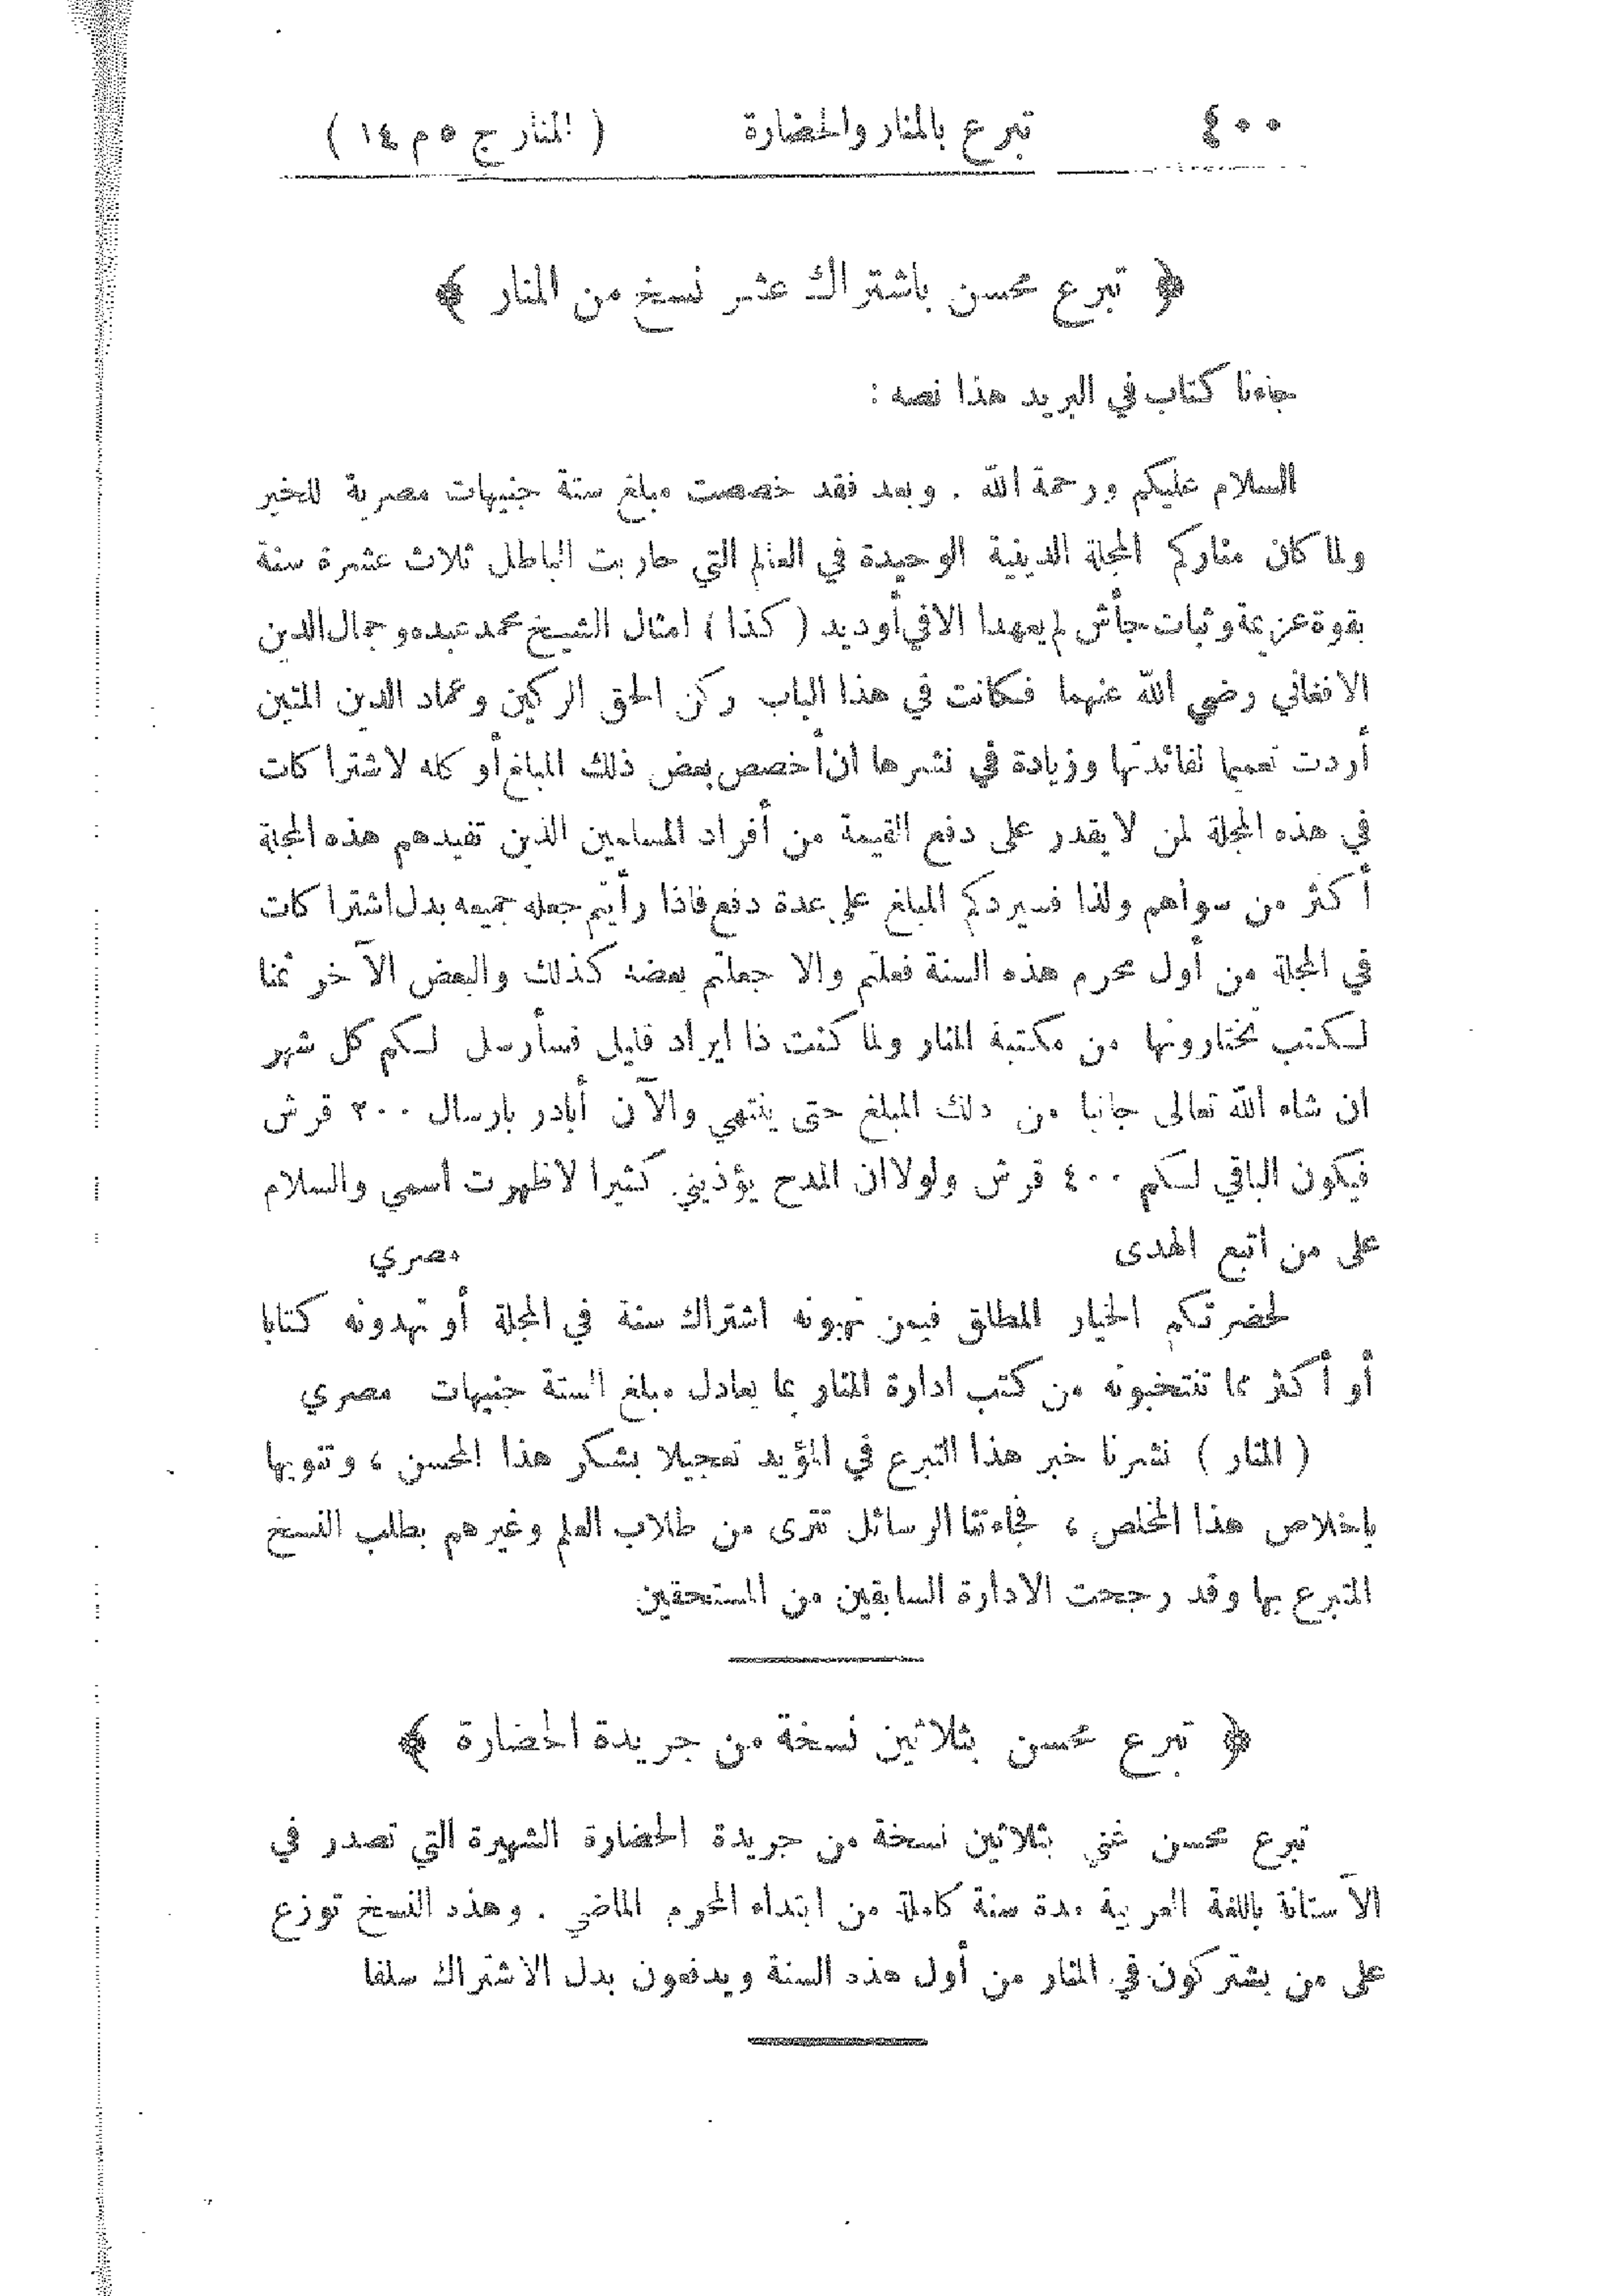 ٤٠٠ تبرع بالمنار والحضارة ( المنار ج ٥ م ١٤ )
﴿ تبرع محسن باشتراك عشر نسخ من المنار ﴾
جاءنا كتاب في البريد هذا نصه :
السلام عليكم ورحمة الله . وبعد فقد خصصت مبلغ ستة جنيهات مصرية للخير
ولما كان مناركم المجلة الدينية الوحيدة في العالم التي حاربت الباطل ثلاث عشرة سنة
بقوة عزيمة وثبات جأش لم يعهدا الا في أوديد ( كذا ) امثال الشيخ محمد عبده وجمال الدين
الافغاني رضي الله عنهما فكانت في هذا الباب ركن الحق الركين وعماد الدين المتين
أردت تعميما لفائدتها وزيادة في نشرها ان أخصص بعض ذلك المبلغ أو كله لاشتراكات
في هذه المجلة لمن لا يقدر على دفع القيمة من أفراد المسلمين الذين تفيدهم هذه المجلة
أكثر من سواهم ولذا فسيردكم المبلغ على عدة دفع فاذا رأيتم جعله جميعه بدل اشتراكات
في المجلة من أول محرم هذه السنة فعلتم والا جعلتم بعضه كذلك والبعض الآخر ثمنا
لكتب تختارونها من مكتبة المنار ولما كنت ذا ايراد قليل فسأرسل لكم كل شهر
ان شاء الله تعالى جانبا من ذلك المبلغ حتى ينتهي والآن أبادر بارسال ٢٠٠ قرش
فيكون الباقي لكم ٤٠٠ قرش ولولا ان المدح يؤذيني كثيرا لاظهرت اسمي والسلام
على من اتبع الهدى مصري
لحضرتكم الخيار المطلق فيمن تهبونه اشتراك سنة في المجلة أو تهدونه كتابا
أو أكثر مما تنتخبونه من كتب ادارة المنار بما يعادل مبلغ الستة جنيهات مصري
( المنار ) نشرنا خبر هذا التبرع في المؤيد تعجيلا بشكر هذا المحسن ، وتنويها
باخلاص هذا المخلص ، فجاءتنا الرسائل تترى من طلاب العلم وغيرهم بطلب النسخ
المتبرع بها وقد رجحت الادارة السابقين من المستحقين
﴿ تبرع محسن بثلاثين نسخة من جريدة الحضارة ﴾
تبرع محسن غني بثلاثين نسخة من جريدة الحضارة الشهيرة التي تصدر في
الآستانة باللغة العربية مدة سنة كاملة من ابتداء المحرم الماضي . وهذه النسخ توزع
على من يشتركون في المنار من أول هذه السنة ويدفعون بدل الاشتراك سلفا